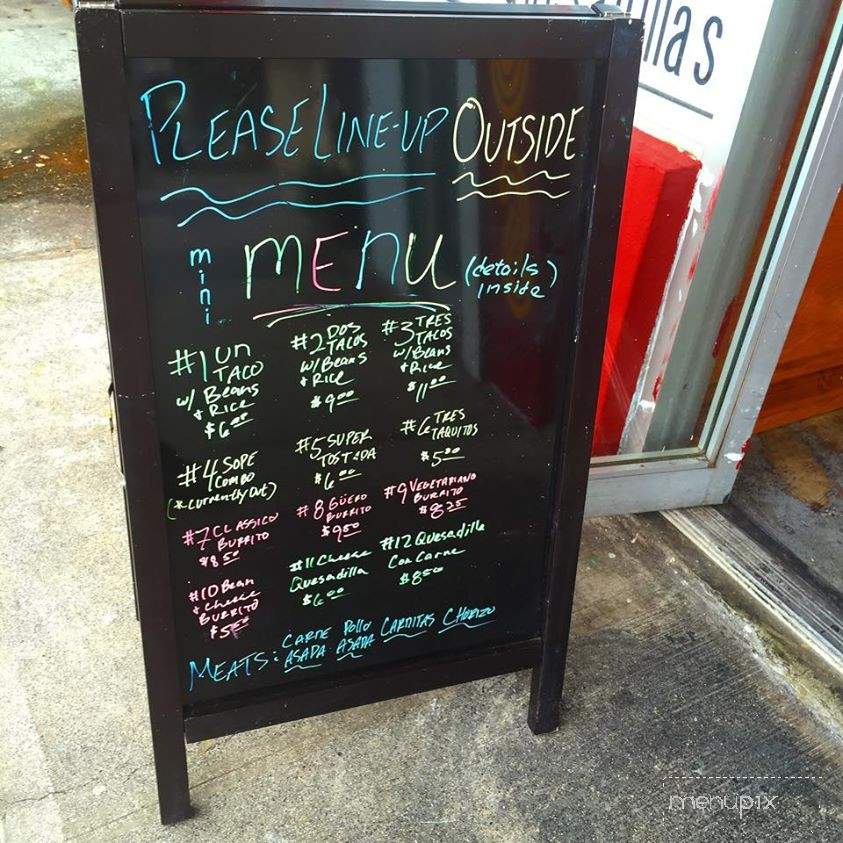 llas
PLEASE LINE-UP OUTSIDE
mini MENU (details inside)
#1 UN
TACO
w/ Beans
+ Rice
$6.00
#2 DOS
TACOS
w/Beans
+ Rice
$9.00
#3 TRES
TACOS
w/Beans
+ Rice
$11.00
#4 SOPE
COMBO
(*Currently Out)
#5 SUPER
TOSTADA
$6.00
#6 TRES
TAQUITOS
$5.00
#7 CLASSICO
BURRITO
$8.50
#8 GÜERO
BURRITO
$9.50
#9 VEGETARIANO
BURRITO
$8.25
#10 Bean
+ cheese
BURRITO
$5.50
#11 Cheese
Quesadilla
$6.00
#12 Quesadilla
Con Carne
$8.50
MEATS: CARNE ASADA POLLO ASADA CARNITAS CHORIZO
menupix